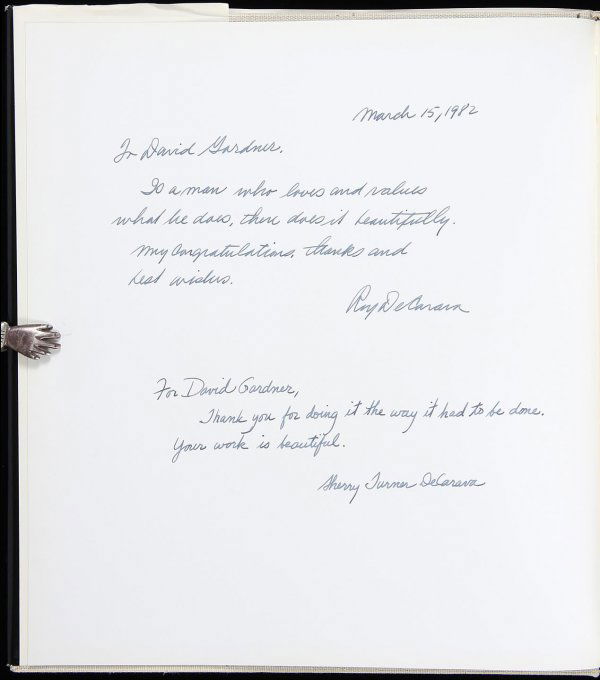 March 15, 1982
To David Gardner.
To a man who loves and values
what he does, then does it beautifully.
My congratulations, thanks and
best wishes.
Roy DeCarava
For David Gardner,
Thank you for doing it the way it had to be done.
Your work is beautiful.
Sherry Turner DeCarava